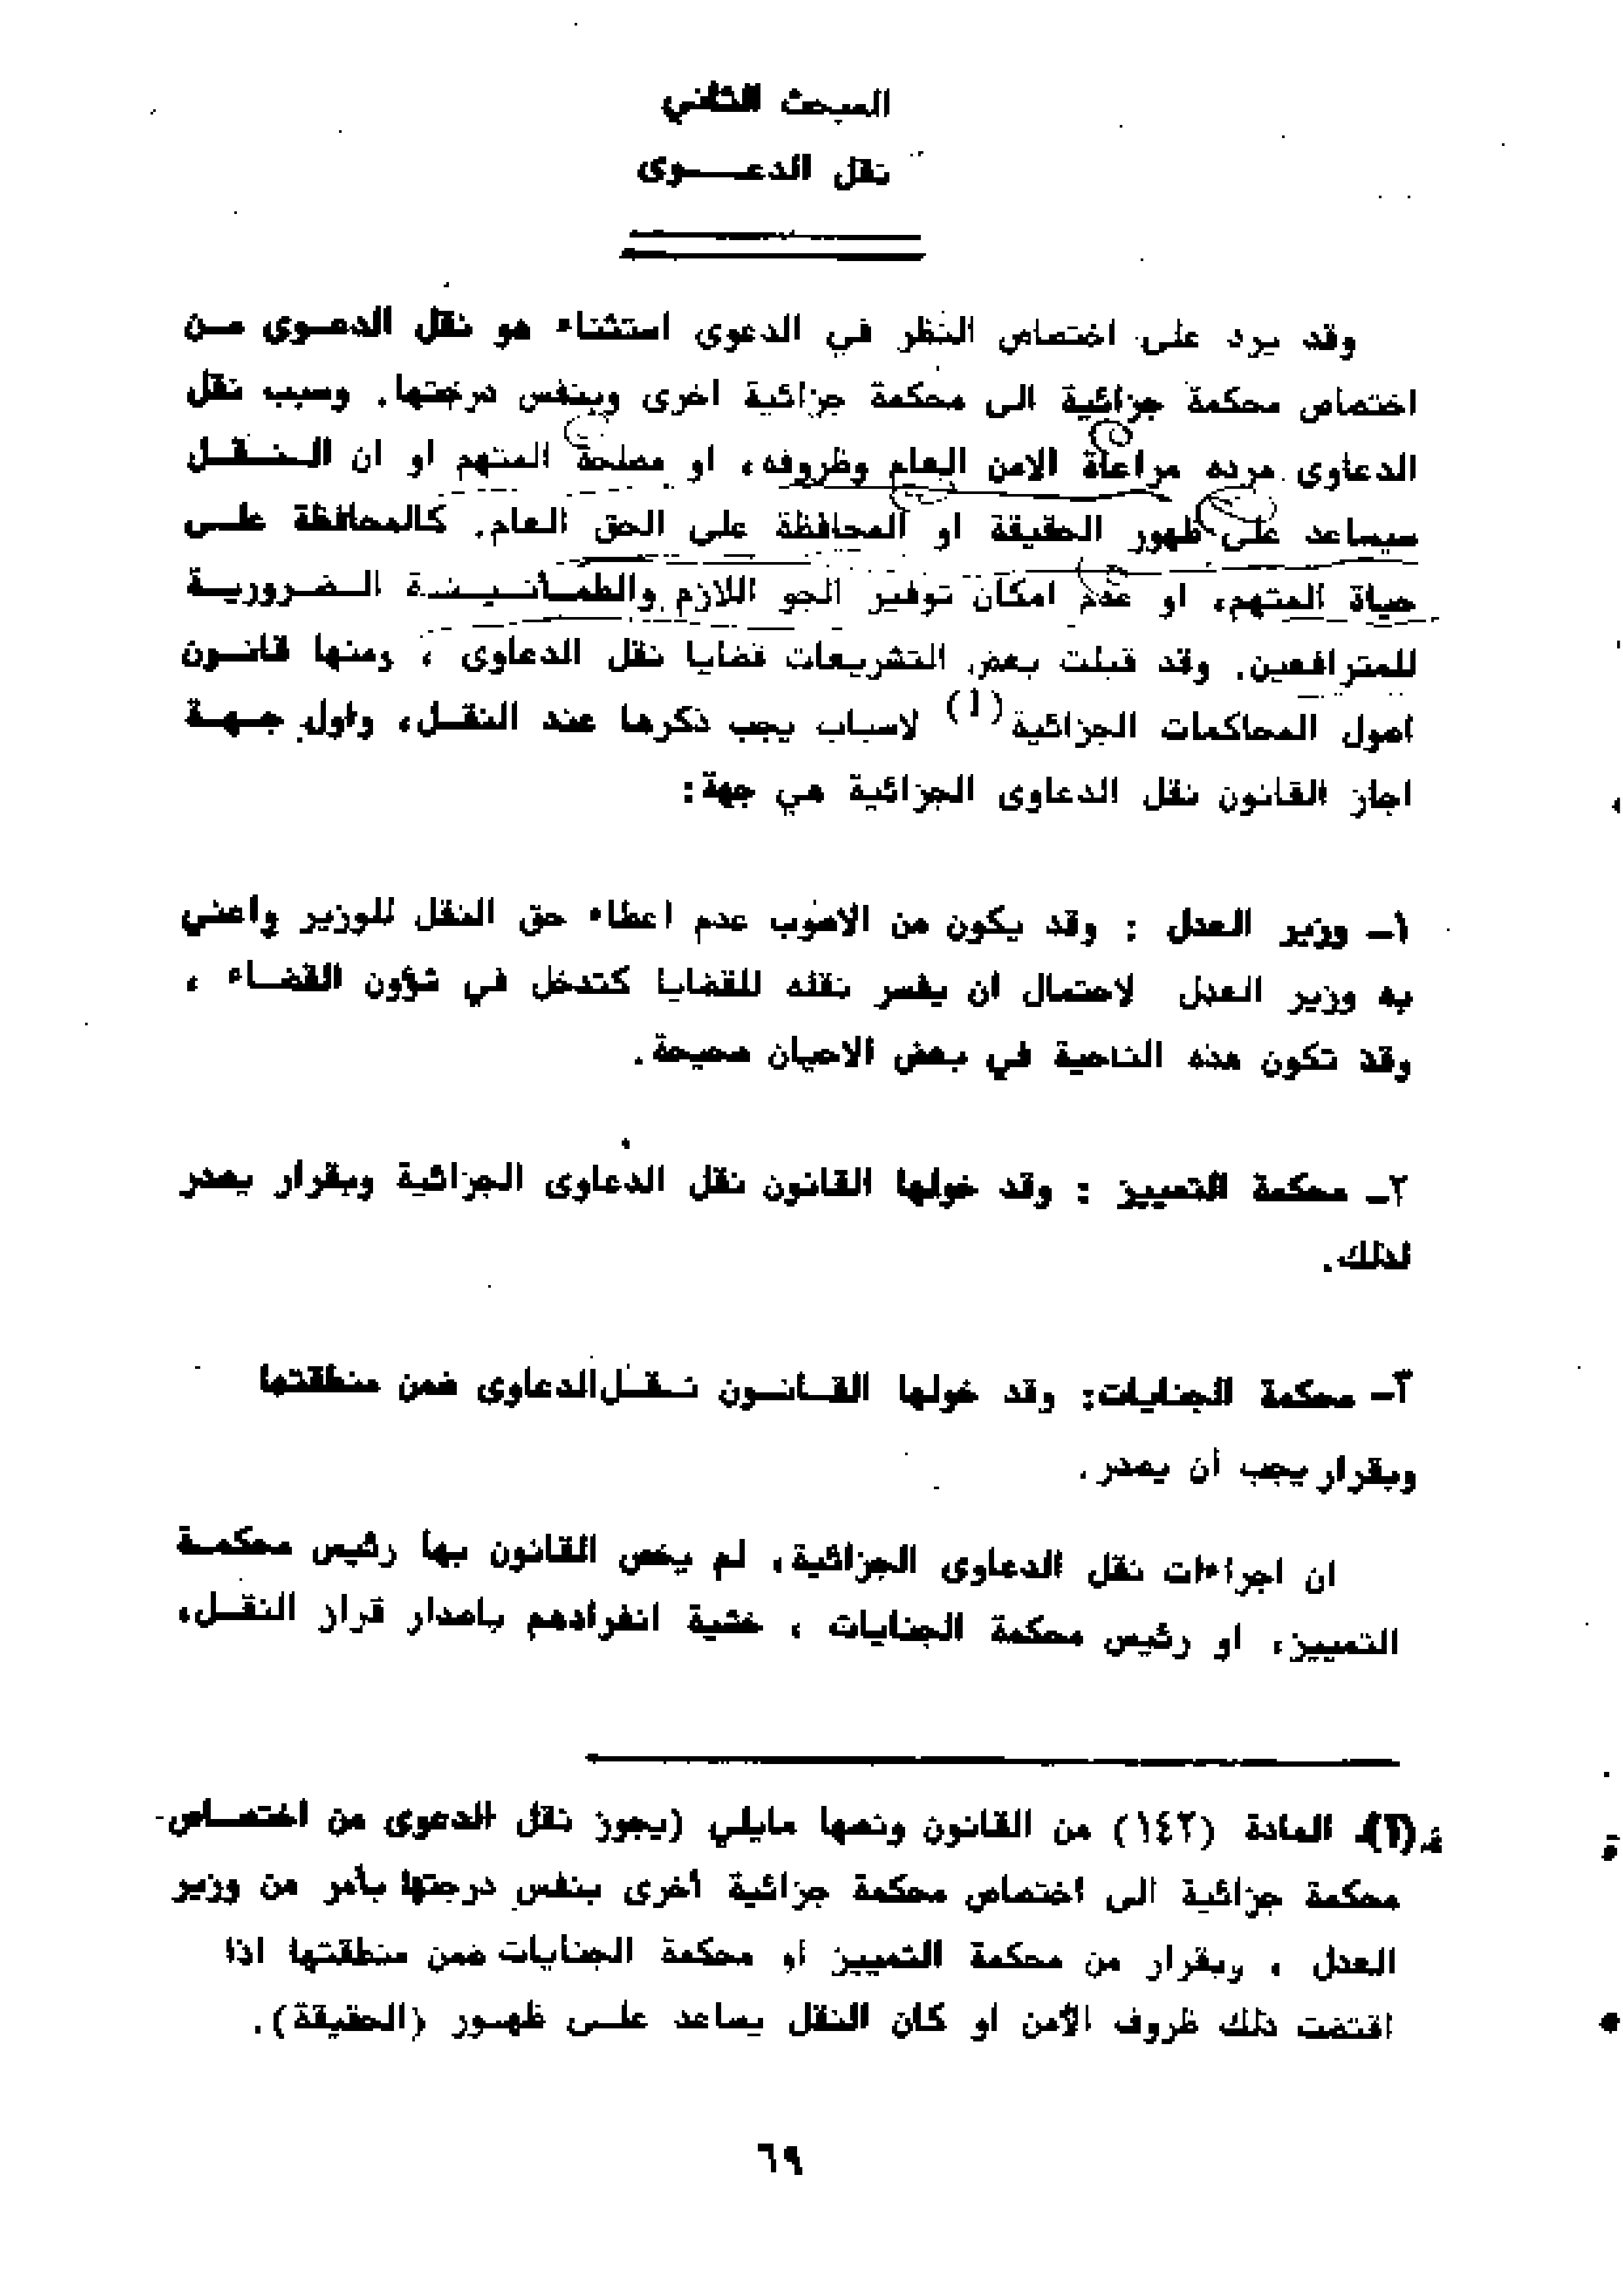 المبحث الثاني
نقل الدعــــوى
وقد يرد على اختصاص النظر في الدعوى استثناء هو نقل الدعـوى مـن
اختصاص محكمة جزائية الى محكمة جزائية اخرى وبنفس درجتها. وسبب نقل
الدعاوى مرده مراعاة الامن العام وظروفه، او مصلحة المتهم او ان الـنـقـل
سيساعد على ظهور الحقيقة او المحافظة على الحق العام. كالمحافظة علـى
حياة المتهم، او عدم امكان توفير الجو اللازم والطمـأنـيـنـة الـضـروريـة
للمترافعين. وقد قبلت بعض التشريعات قضايا نقل الدعاوى ، ومنها قانـون
اصول المحاكمات الجزائية (١) لاسباب يجب ذكرها عند النقـل، واول جـهـة
اجاز القانون نقل الدعاوى الجزائية هي جهة:
١ـ وزير العدل : وقد يكون من الاصوب عدم اعطاء حق النقل للوزير واعني
به وزير العدل لاحتمال ان يفسر نقله للقضايا كتدخل في شؤون القضـاء ،
وقد تكون هذه الناحية في بعض الاحيان صحيحة.
٢ـ محكمة التمييز : وقد خولها القانون نقل الدعاوى الجزائية وبقرار يصدر
لذلك.
٣ـ محكمة الجنايات: وقد خولها القـانـون نـقـل الدعاوى ضمن منطقتها
وبقرار يجب ان يصدر.
ان اجراءات نقل الدعاوى الجزائية، لم يخص القانون بها رئيس محكمـة
التمييز، او رئيس محكمة الجنايات ، خشية انفرادهم باصدار قرار النقـل،
(١)ـ المادة (١٤٢) من القانون ونصها مايلي (يجوز نقل الدعوى من اختصـاص
محكمة جزائية الى اختصاص محكمة جزائية أخرى بنفس درجتها بأمر من وزير
العدل ، وبقرار من محكمة التمييز او محكمة الجنايات ضمن منطقتها اذا
اقتضت ذلك ظروف الأمن او كان النقل يساعد علـى ظهـور (الحقيقة).
٦٩